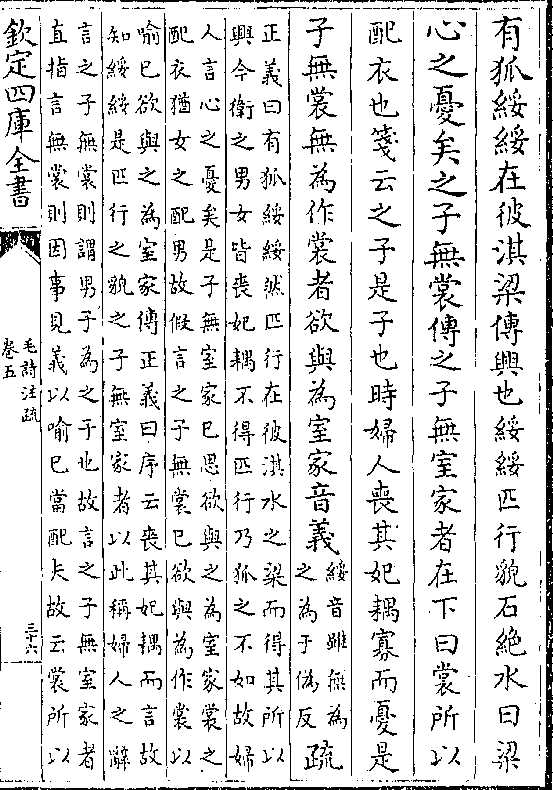 有狐綏綏在彼淇梁傳興也綏綏匹行貌石絶水曰梁
心之憂矣之子無裳傳之子無室家者在下曰裳所以
配衣也箋云之子是子也時婦人喪其妃耦寡而憂是
子無裳無為作裳者欲與為室家音義
綏音雖無為
之為于偽反
疏
正義曰有狐綏綏然匹行在彼淇水之梁而得其所以
興今衛之男女皆喪妃耦不得匹行乃狐之不如故婦
人言心之憂矣是子無室家已思欲與之為室家裳之
配衣猶女之配男故假言之子無裳已欲與為作裳以
喻已欲與之為室家傳正義曰序云喪其妃耦而言故
知綏綏是匹行之貌之子無室家者以此稱婦人之辭
言之子無裳則謂男子為之子也故言之子無室家者
直指言無裳則因事見義以喻已當配夫故云裳所以
欽定四庫全書
毛詩注疏
卷五
三十六